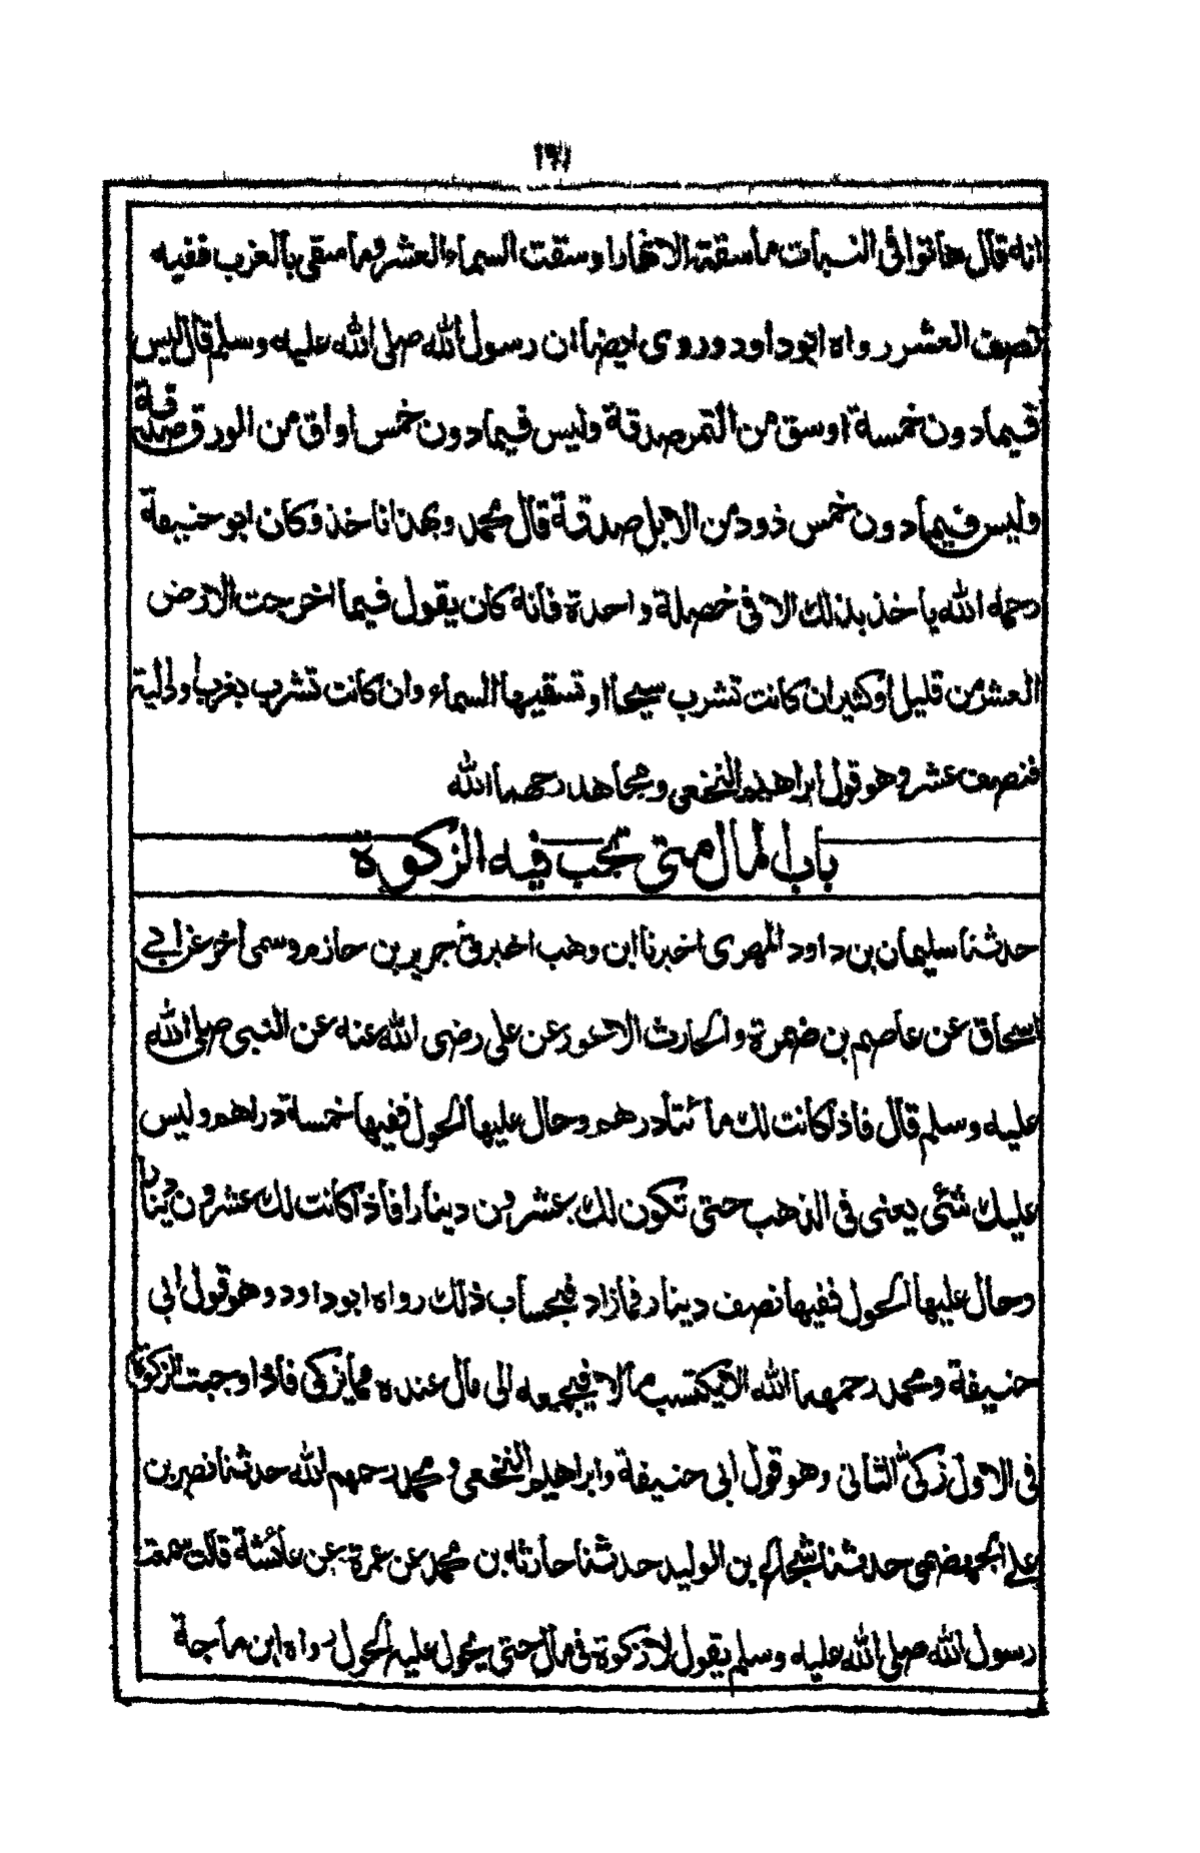 انه قال هاتوا فى النبات ما سقته الانهار او سقت السماء العشر وما سقى بالغرب ففيه
نصف العشر رواه ابوداود وروى ايضا ان رسول الله صلى الله عليه وسلم قال ليس
فيما دون خمسة اوسق من التمر صدقة وليس فيما دون خمس اواق من الورق صدقة
وليس فيما دون خمس ذود من الابل صدقة قال محمد وبهذا ناخذ وكان ابو حنيفة
رحمه الله ياخذ بذلك الا فى خصلة واحدة فانه كان يقول فيما اخرجت الارض
العشر من قليل او كثير ان كانت تشرب سيحا او تسقيها السماء وان كانت تشرب بغرب او دالية
فنصف عشر وهو قول ابراهيم النخعى ومجاهد رحمهما الله
باب المال متى تجب فيه الزكوة
حدثنا سليمان بن داود المهرى اخبرنا ابن وهب اخبرنى جرير بن حازم وسمى اخر عن ابى
اسحاق عن عاصم بن ضمرة والحارث الاعور عن على رضى الله عنه عن النبى صلى الله
عليه وسلم قال فاذا كانت لك مائتا درهم وحال عليها الحول ففيها خمسة دراهم وليس
عليك شئى يعنى فى الذهب حتى تكون لك عشرون دينارا فاذا كانت لك عشرون دينارا
وحال عليها الحول ففيها نصف دينار فمازاد فبحساب ذلك رواه ابوداود وهو قول ابى
حنيفة ومحمد رحمهما الله الا يكتسب مالا فيجمعه الى مال عنده مما يزكى فاذا وجبت الزكوة
فى الاول زكى الثانى وهو قول ابى حنيفة وابراهيم النخعى ومحمد رحمهم الله حدثنا نصر بن
على الجهضمى حدثنا شجاع بن الوليد حدثنا حارثه بن محمد عن عمرة عن عائشة قالت سمعت
رسول الله صلى الله عليه وسلم يقول لا زكوة فى مال حتى يحول عليه الحول رواه ابن ماجة